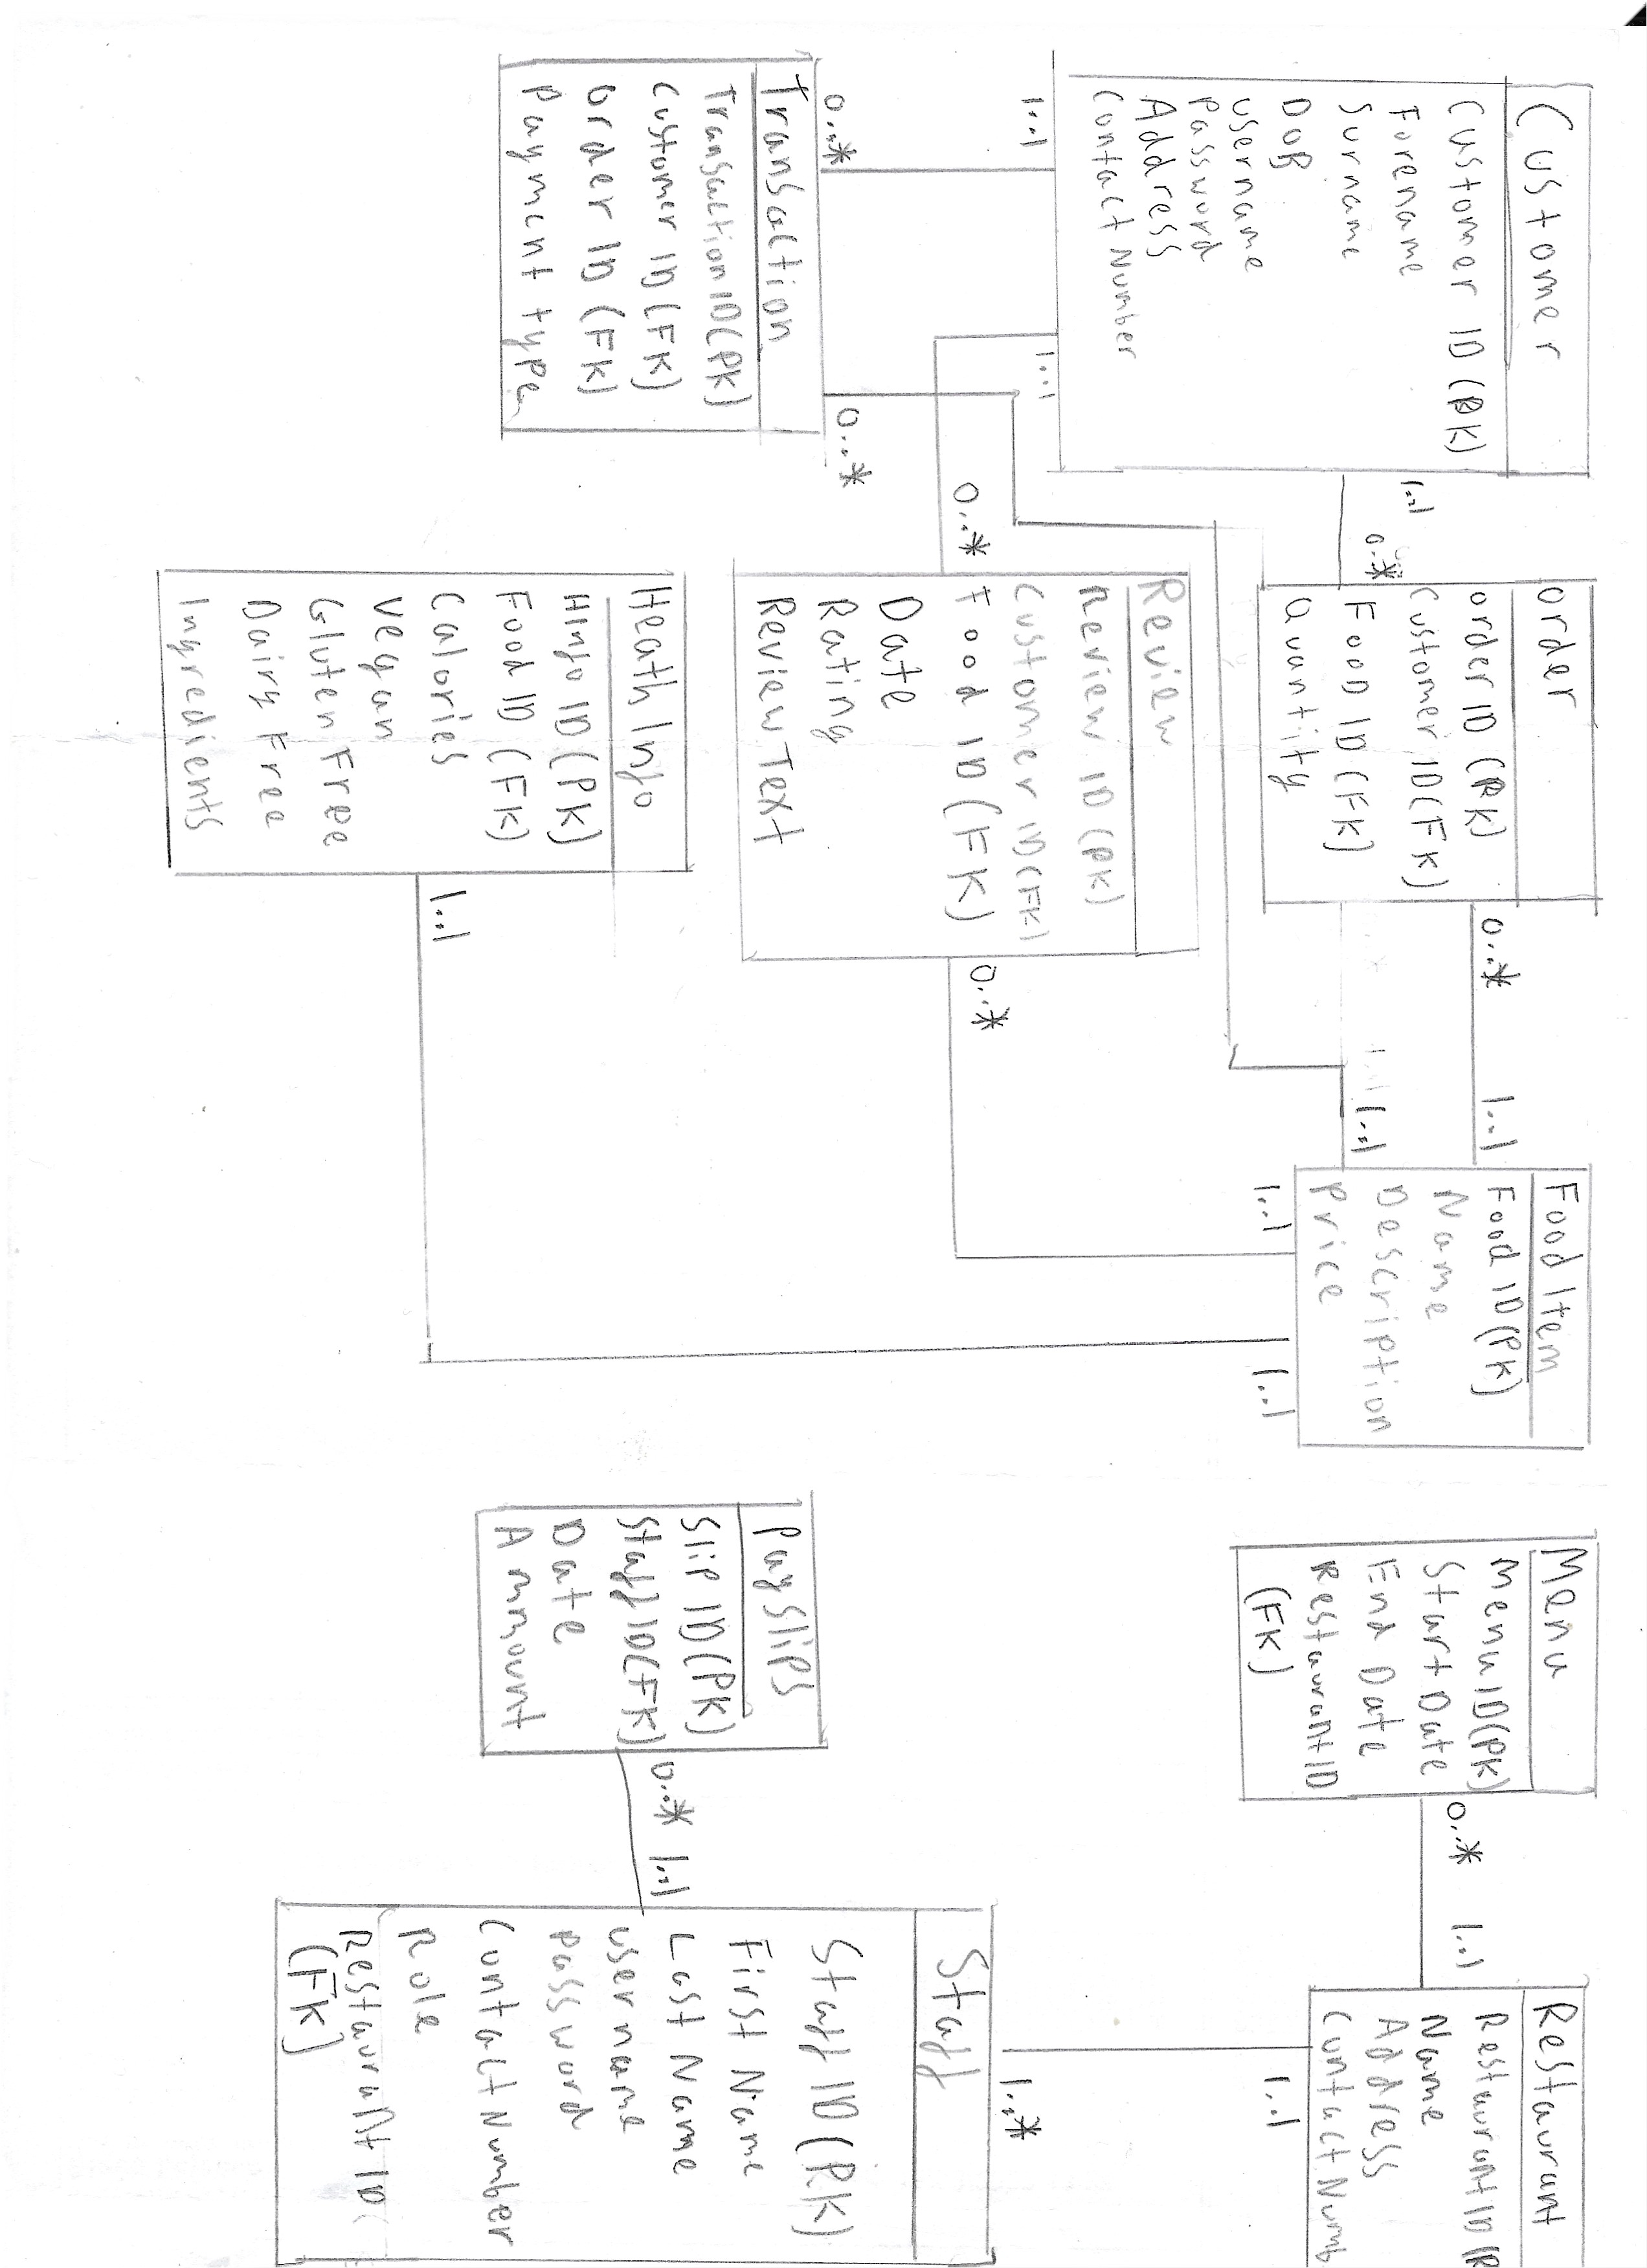 Customer
Customer ID (PK)
Forename
Surname
DoB
username
Password
Address
Contact Number
1..1
0..*
order
order ID (PK)
Customer ID (FK)
Food ID (FK)
Quantity
0..*
1..1
1..1
Food Item
Food ID (PK)
Name
Description
Price
1..1
1..1
Menu
Menu ID (PK)
Start Date
End Date
Restaurant ID
(FK)
0..*
1..1
Restaurant
Restaurant ID (P
Name
Address
Contact Numb
1..1
1..*
1..1
1..1
0..*
0..*
0..*
Review
Review ID (PK)
Customer ID (FK)
Food ID (FK)
Date
Rating
Review Text
0..*
Transaction
Transaction ID (PK)
Customer ID (FK)
Order ID (FK)
Payment type
Heath Info
HInfo ID (PK)
Food ID (FK)
Calories
Vegan
Gluten Free
Dairy Free
Ingredients
1..1
Payslips
Slip ID (PK)
Staff ID (FK)
Date
Ammount
0..*
1..1
Staff
Staff ID (PK)
First Name
Last Name
username
Password
Contact Number
Role
Restaurant ID
(FK)